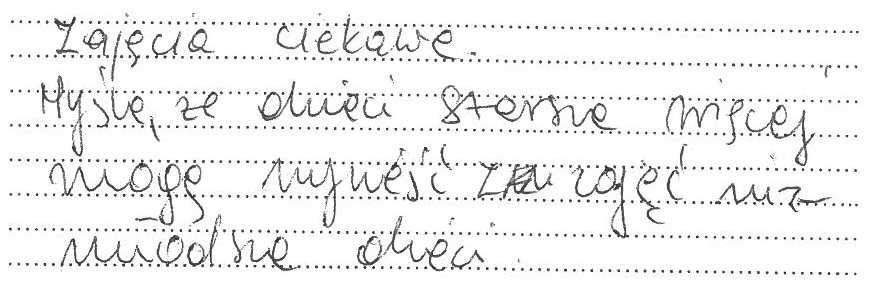 Zajęcia ciekawe.
Myślę, że dzieci starsze więcej
mogą wynieść z zajęć niż
młodsze dzieci.